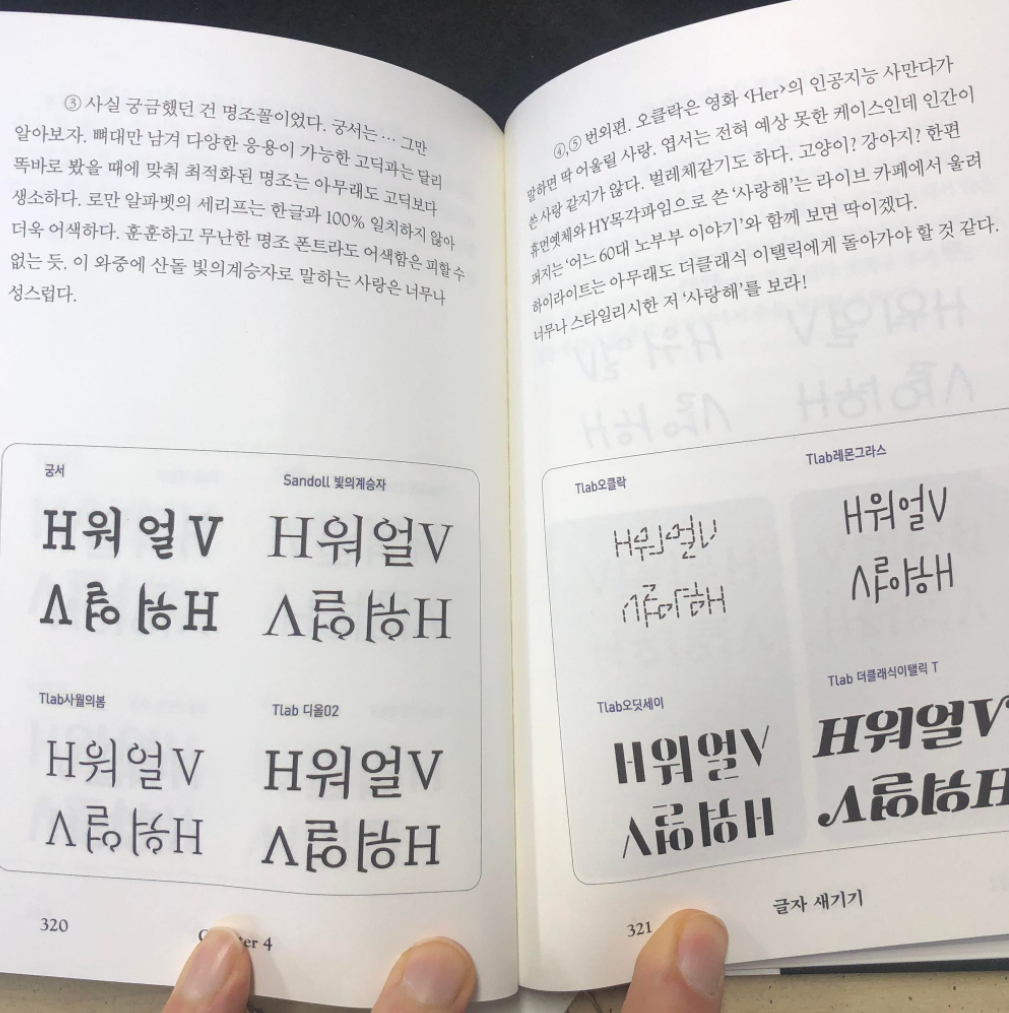 ③ 사실 궁금했던 건 명조꼴이었다. 궁서는 … 그만
알아보자. 뼈대만 남겨 다양한 응용이 가능한 고딕과는 달리
똑바로 봤을 때에 맞춰 최적화된 명조는 아무래도 고딕보다
생소하다. 로만 알파벳의 세리프는 한글과 100% 일치하지 않아
더욱 어색하다. 훈훈하고 무난한 명조 폰트라도 어색함은 피할 수
없는 듯. 이 와중에 산돌 빛의계승자로 말하는 사랑은 너무나
성스럽다.
궁서
H워 얼 V
H워 얼 V
Sandoll 빛의계승자
H워얼V
H워얼V
Tlab사월의봄
H워얼V
H워얼V
Tlab 디올02
H워얼V
H워얼V
320
4
④,⑤ 번외편. 오클락은 영화 <Her>의 인공지능 사만다가
말하면 딱 어울릴 사랑. 엽서는 전혀 예상 못한 케이스인데 인간이
쓴 사랑 같지가 않다. 벌레체같기도 하다. 고양이? 강아지? 한편
휴먼옛체와 HY목각파임으로 쓴 ‘사랑해’는 라이브 카페에서 울려
퍼지는 ‘어느 60대 노부부 이야기’와 함께 보면 딱이겠다.
하이라이트는 아무래도 더클래식 이탤릭에게 돌아가야 할 것 같다.
너무나 스타일리시한 저 ‘사랑해’를 보라!
Tlab오클락
H워얼V
H워얼V
Tlab레몬그라스
H워얼V
H워얼V
Tlab오딧세이
H워얼V
H워얼V
Tlab 더클래식이탤릭 T
H워얼V
H워얼V
321
글자 새기기